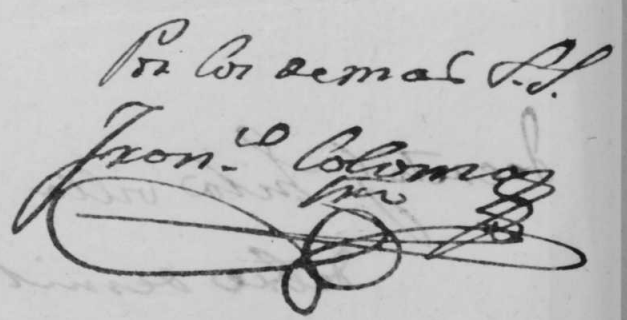 Por los demas S.S.
Fran.co Coloma